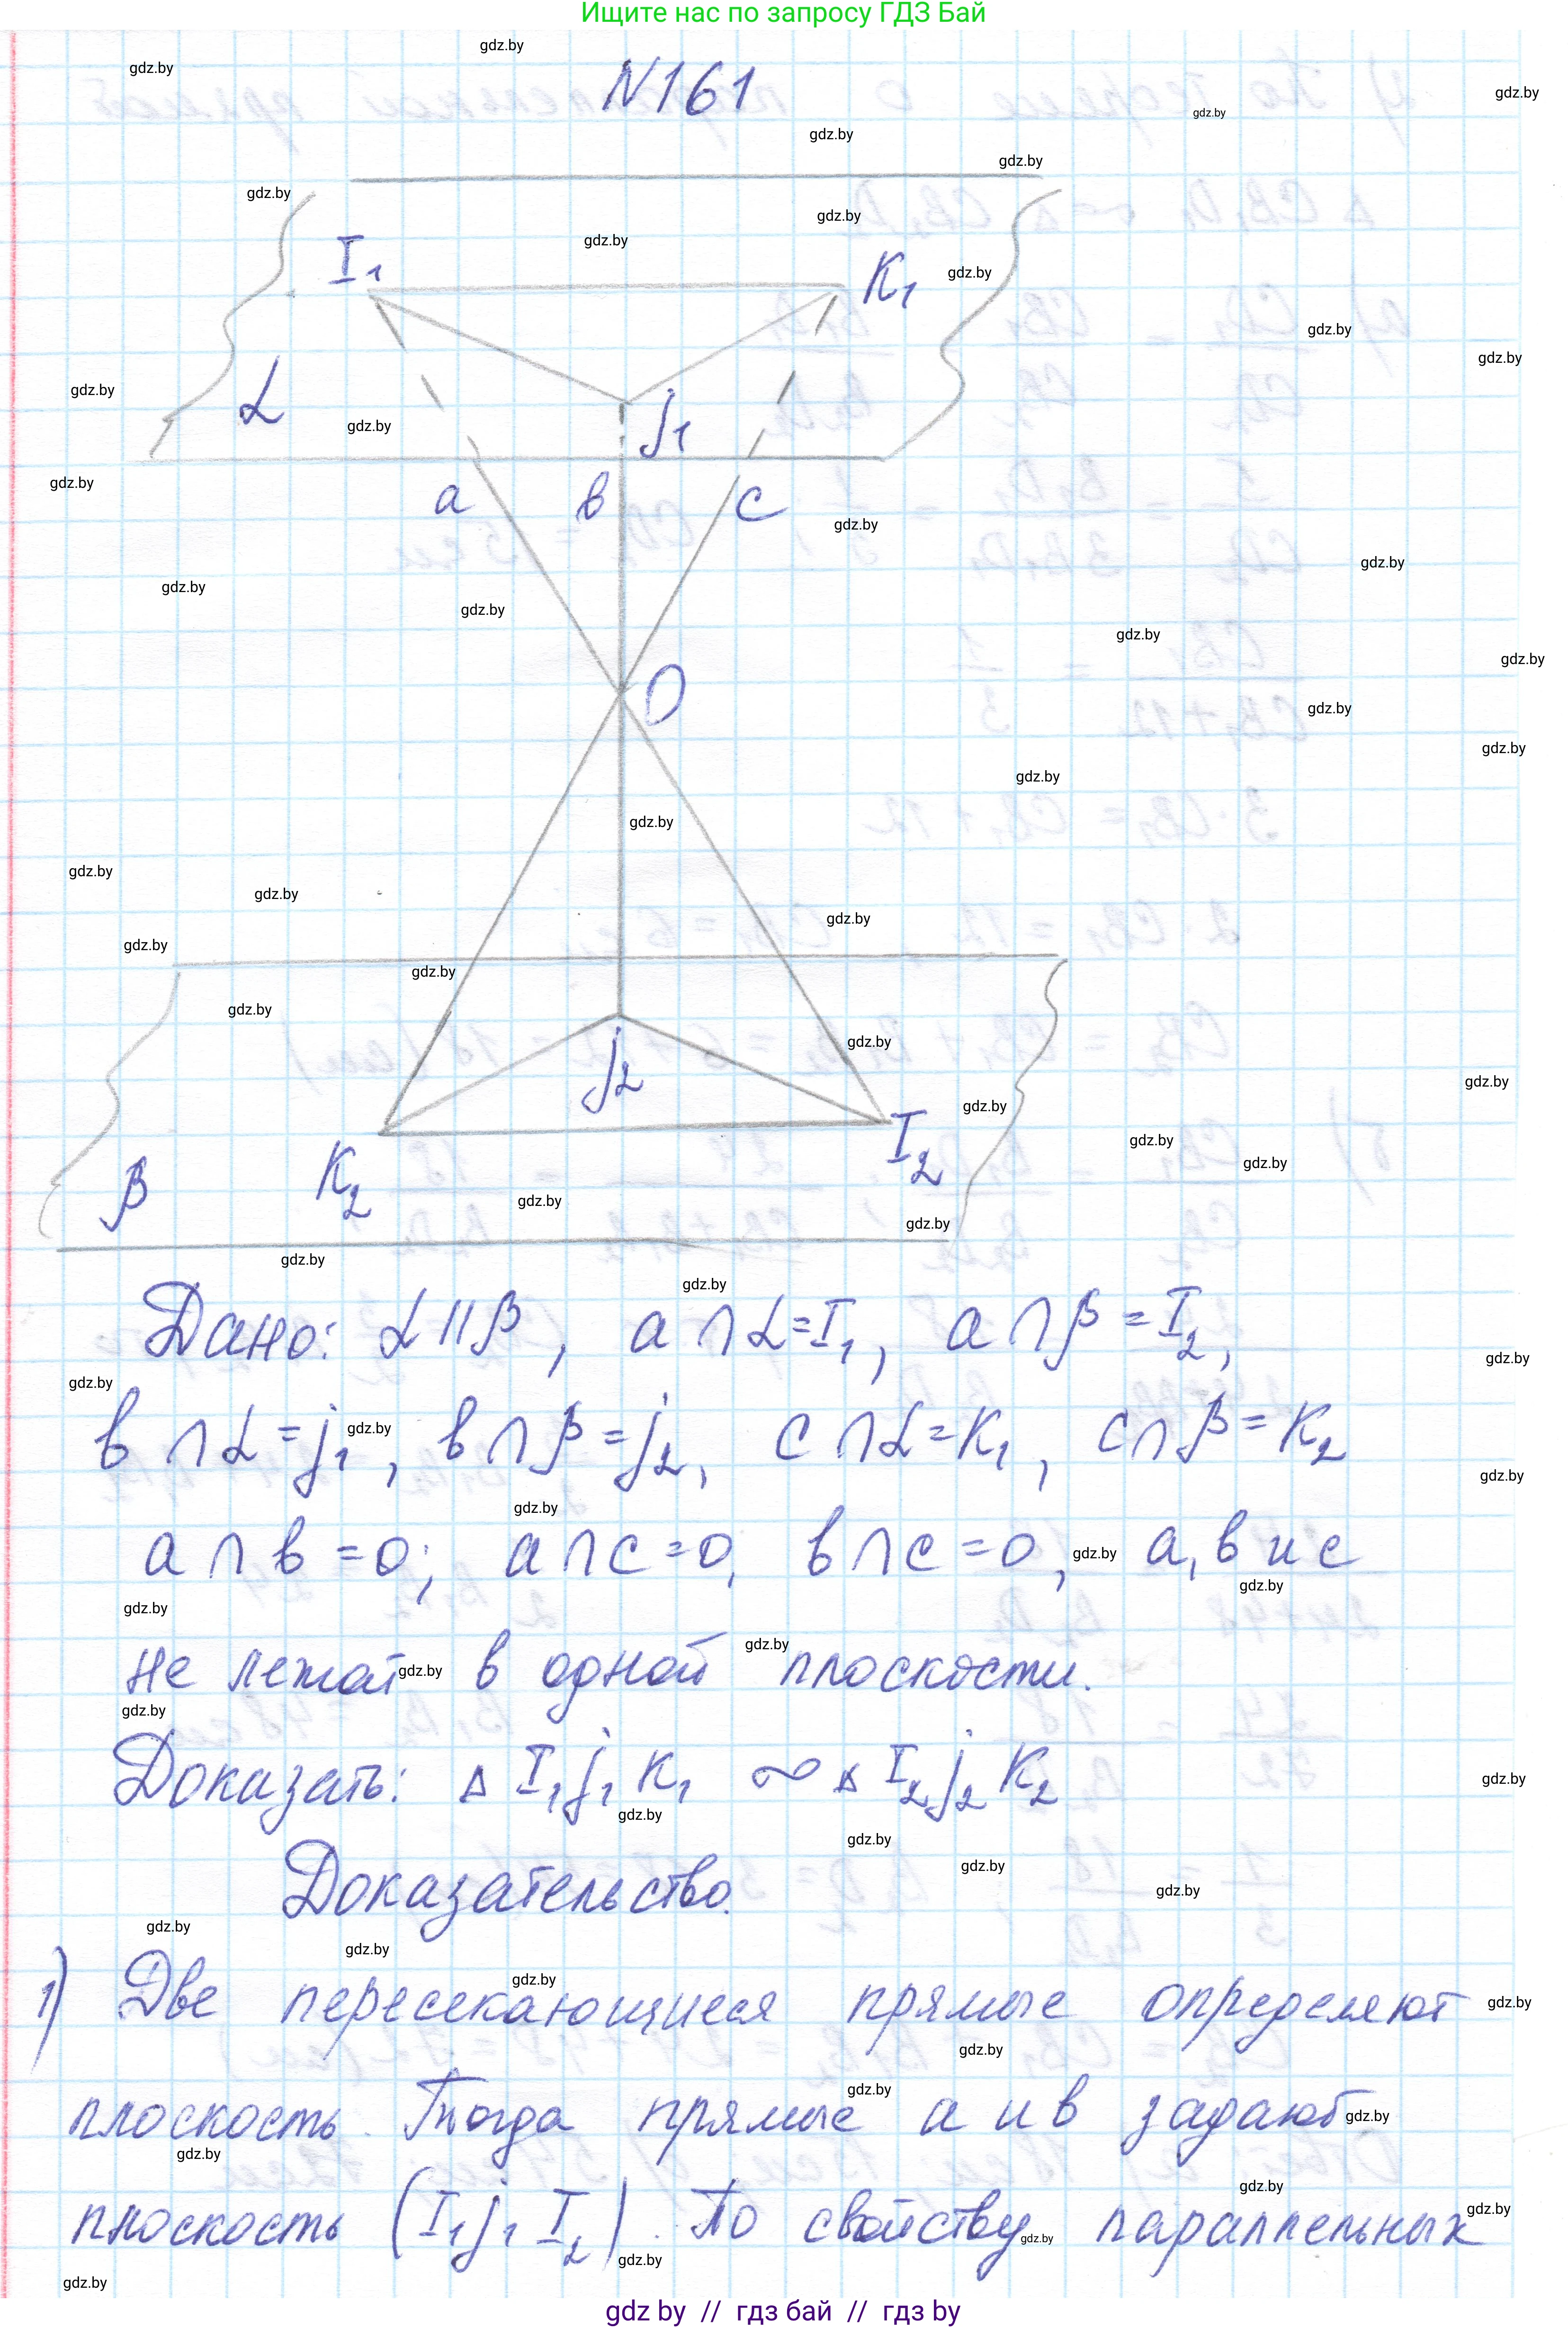 Ищите нас по запросу ГДЗ Бай
N161
I₁
K₁
α
j₁
a
в
c
O
j₂
K₂
I₂
β
Дано: α || β, a ∩ α = I₁, a ∩ β = I₂,
в ∩ α = j₁, в ∩ β = j₂, c ∩ α = K₁, c ∩ β = K₂
a ∩ в = 0; a ∩ c = 0, в ∩ c = 0, a, в и c
не лежат в одной плоскости.
Доказать: Δ I₁j₁K₁ ∞ Δ I₂j₂K₂
Доказательство.
1) Две пересекающиеся прямые определяют
плоскость. Тогда прямые a и в задают
плоскость (I₁j₁I₂). По свойству параллельных
gdz by // гдз бай // гдз by